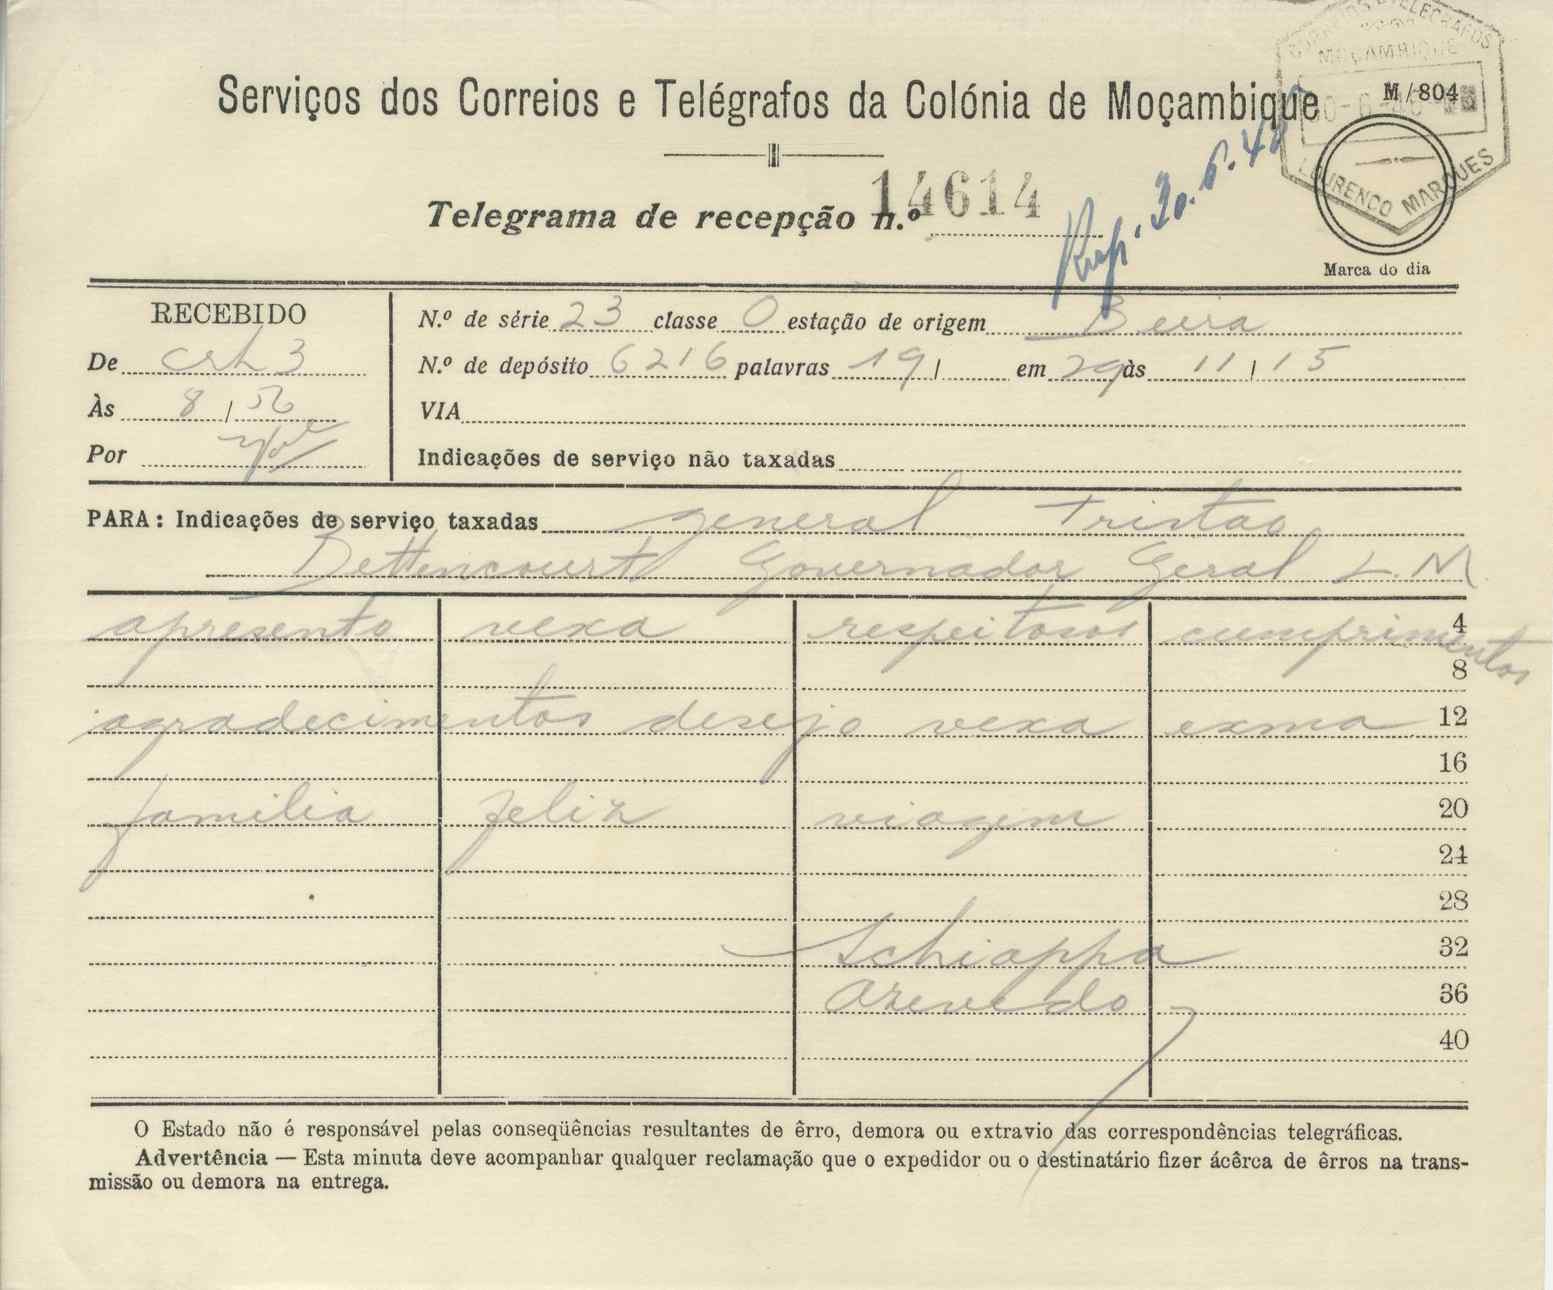 CORREIOS E TELEGRAFOS
MOÇAMBIQUE
LOURENCO MARQUES
M/804
Serviços dos Correios e Telégrafos da Colónia de Moçambique
Telegrama de recepção n.º 14614
Resp. 30.6.46
Marca do dia
RECEBIDO
De crh 3
Às 8/56
Por
N.º de série 23 classe O estação de origem Beira
N.º de depósito 6216 palavras 19/ em 29 às 11/15
VIA
Indicações de serviço não taxadas
PARA: Indicações de serviço taxadas general Tristao
Bettencourt Governador Geral L.M
apresento vexa respeitosos cumprimentos 4
8
agradecimentos desejo vexa exma 12
16
familia feliz viagem 20
24
28
Schiappa 32
azevedo 36
40
O Estado não é responsável pelas conseqüências resultantes de êrro, demora ou extravio das correspondências telegráficas.
Advertência — Esta minuta deve acompanhar qualquer reclamação que o expedidor ou o destinatário fizer ácêrca de êrros na trans-
missão ou demora na entrega.